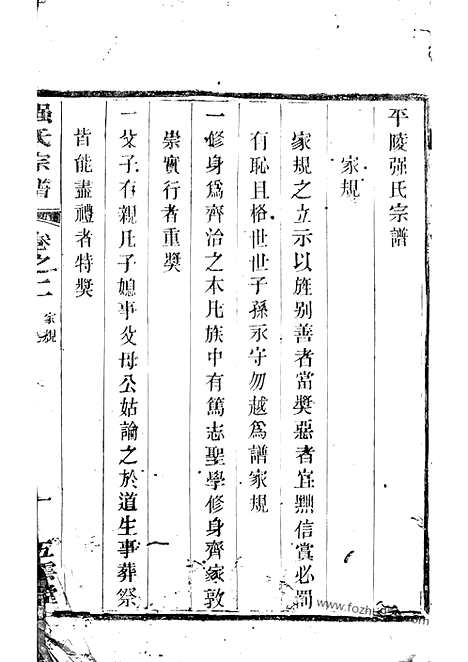 平陵强氏宗譜
家規
家規之立示以旌别善者當奬惡者宜黜信賞必罰
有恥且格世世子孫永守勿越爲譜家規
一修身爲齊治之本凡族中有篤志聖學修身齊家敦
崇實行者重奬
一父子有親凡子媳事父母公姑諭之於道生事葬祭
皆能盡禮者特奬
强氏宗譜
卷之二
家規
一
五雲堂
www.fozhu